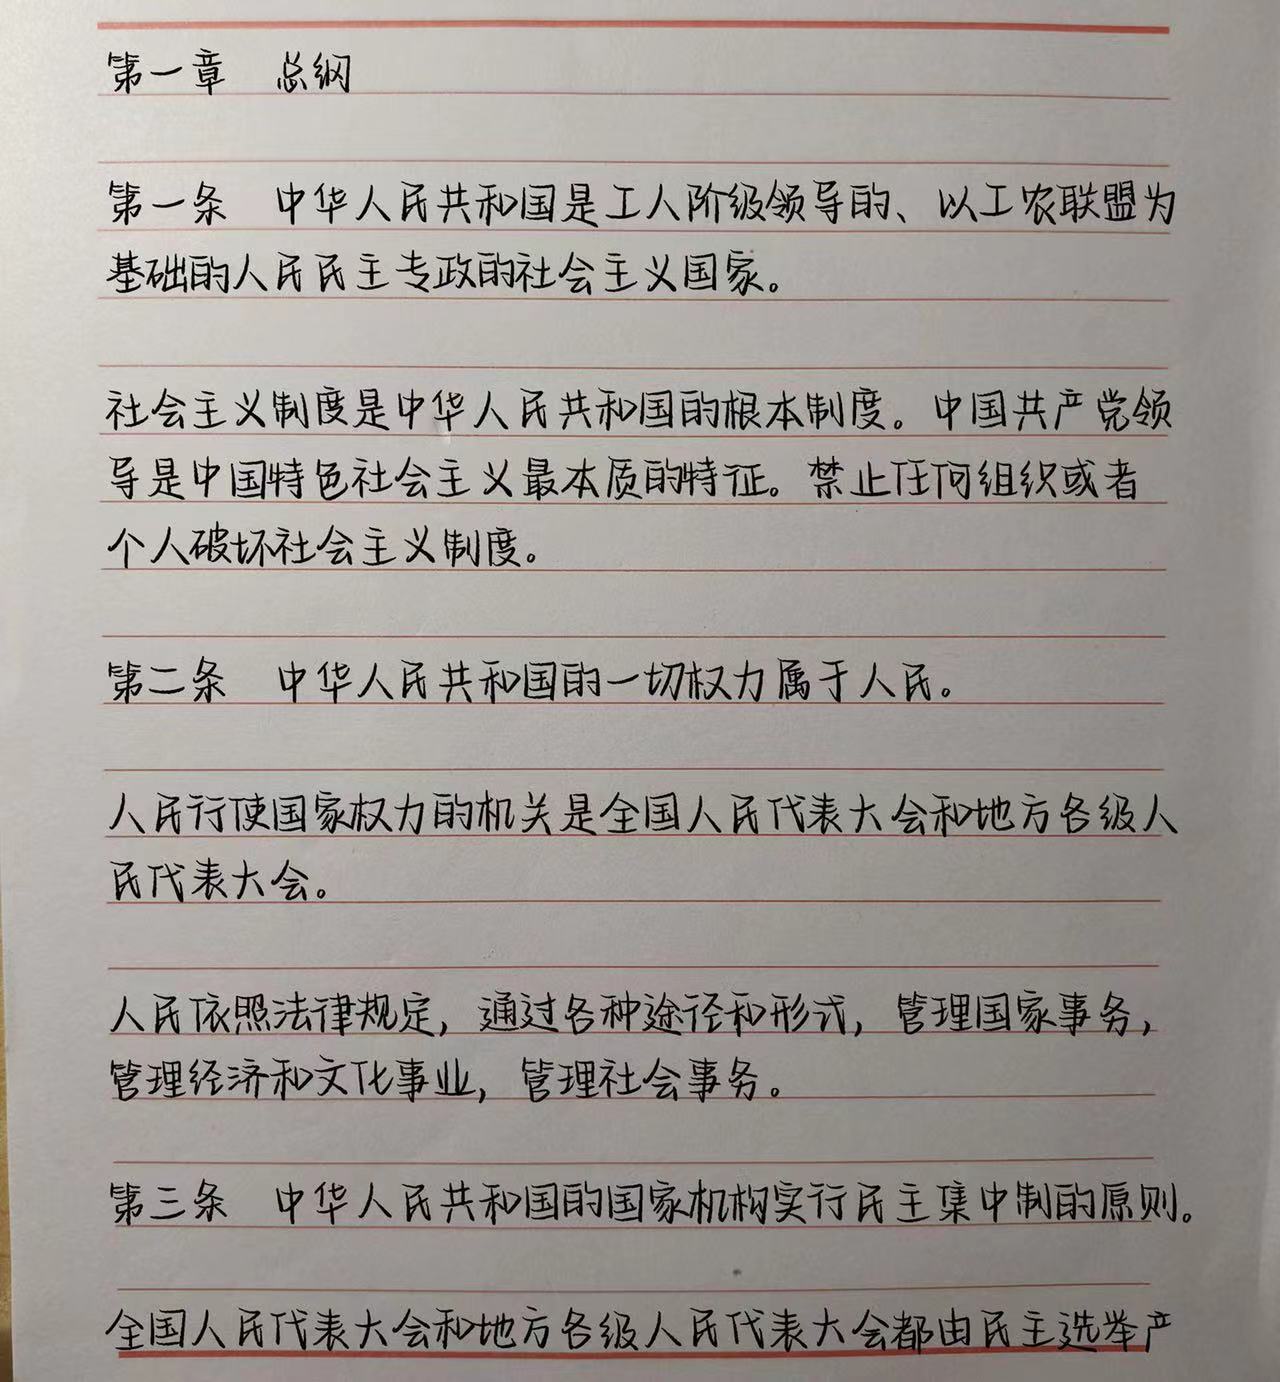 第一章 总纲
第一条 中华人民共和国是工人阶级领导的、以工农联盟为
基础的人民民主专政的社会主义国家。
社会主义制度是中华人民共和国的根本制度。中国共产党领
导是中国特色社会主义最本质的特征。禁止任何组织或者
个人破坏社会主义制度。
第二条 中华人民共和国的一切权力属于人民。
人民行使国家权力的机关是全国人民代表大会和地方各级人
民代表大会。
人民依照法律规定，通过各种途径和形式，管理国家事务，
管理经济和文化事业，管理社会事务。
第三条 中华人民共和国的国家机构实行民主集中制的原则。
全国人民代表大会和地方各级人民代表大会都由民主选举产